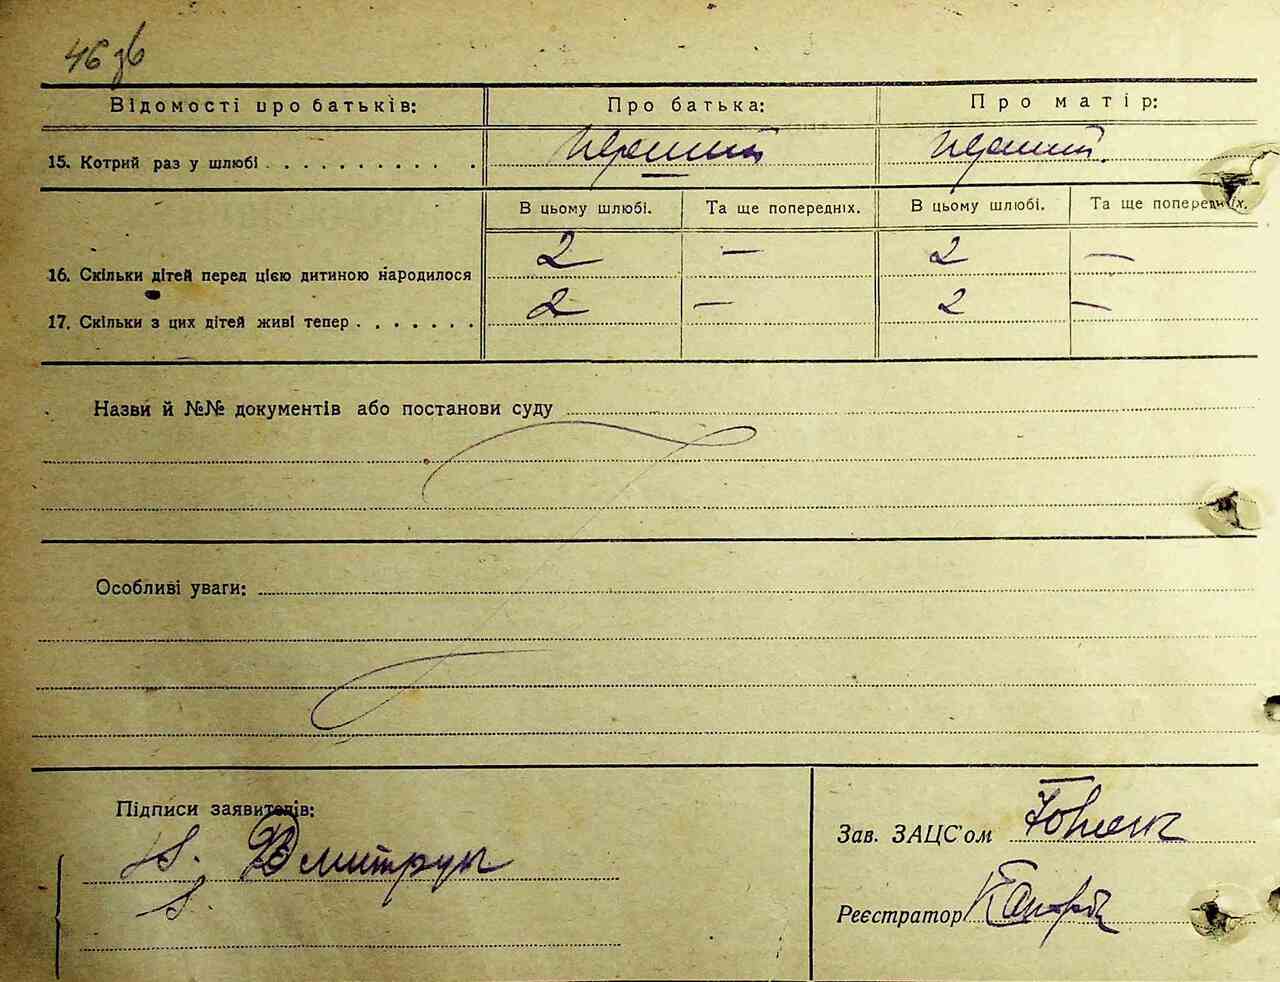 46 зв
Відомості про батьків: Про батька: Про матір:
15. Котрий раз у шлюбі . . . . . . . . . . . перший перший
В цьому шлюбі. Та ще попередніх. В цьому шлюбі. Та ще попередніх.
16. Скільки дітей перед цією дитиною народилося 2 — 2 —
17. Скільки з цих дітей живі тепер . . . . . . . 2 — 2 —
Назви й №№ документів або постанови суду
Особливі уваги:
Підписи заявителів:
Дмитрук
Зав. ЗАЦС'ом
Реєстратор